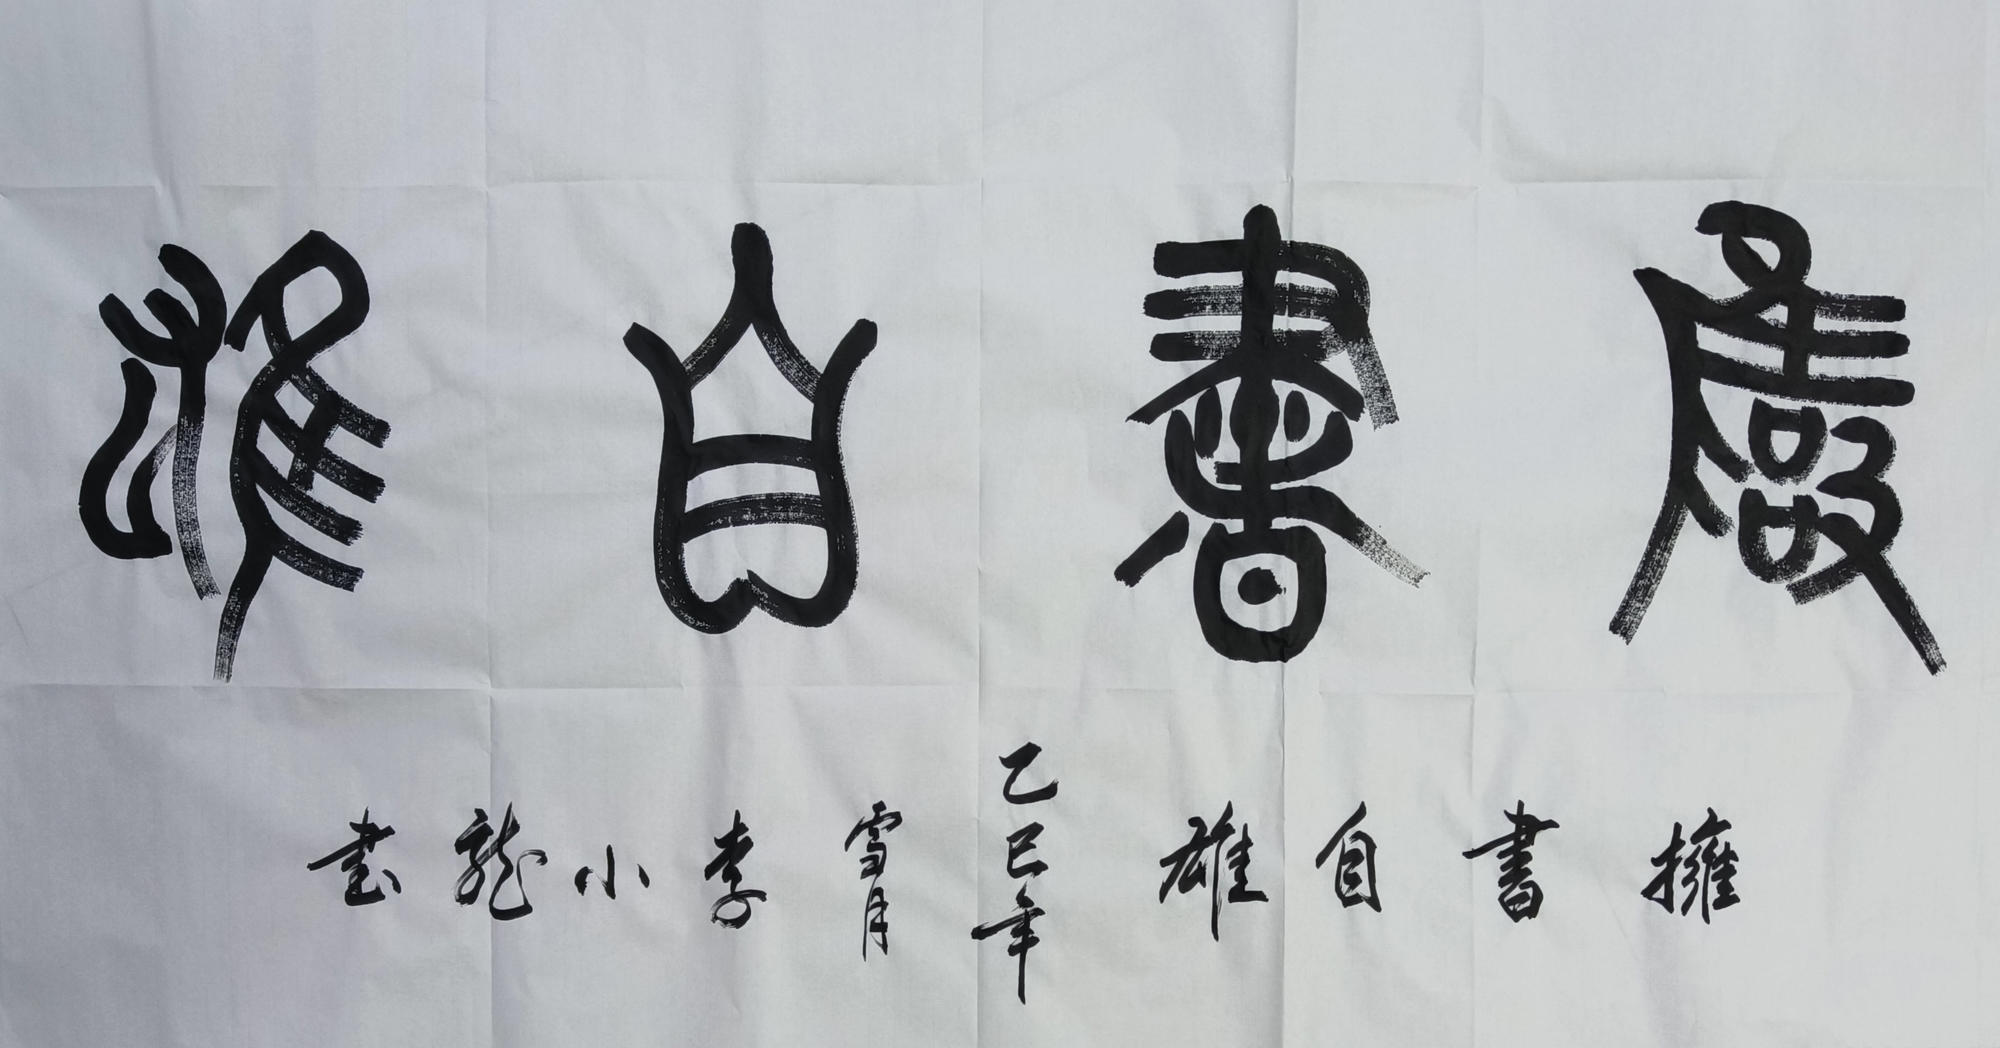 擁書自雄
擁書自雄乙巳年雪月李小龍書